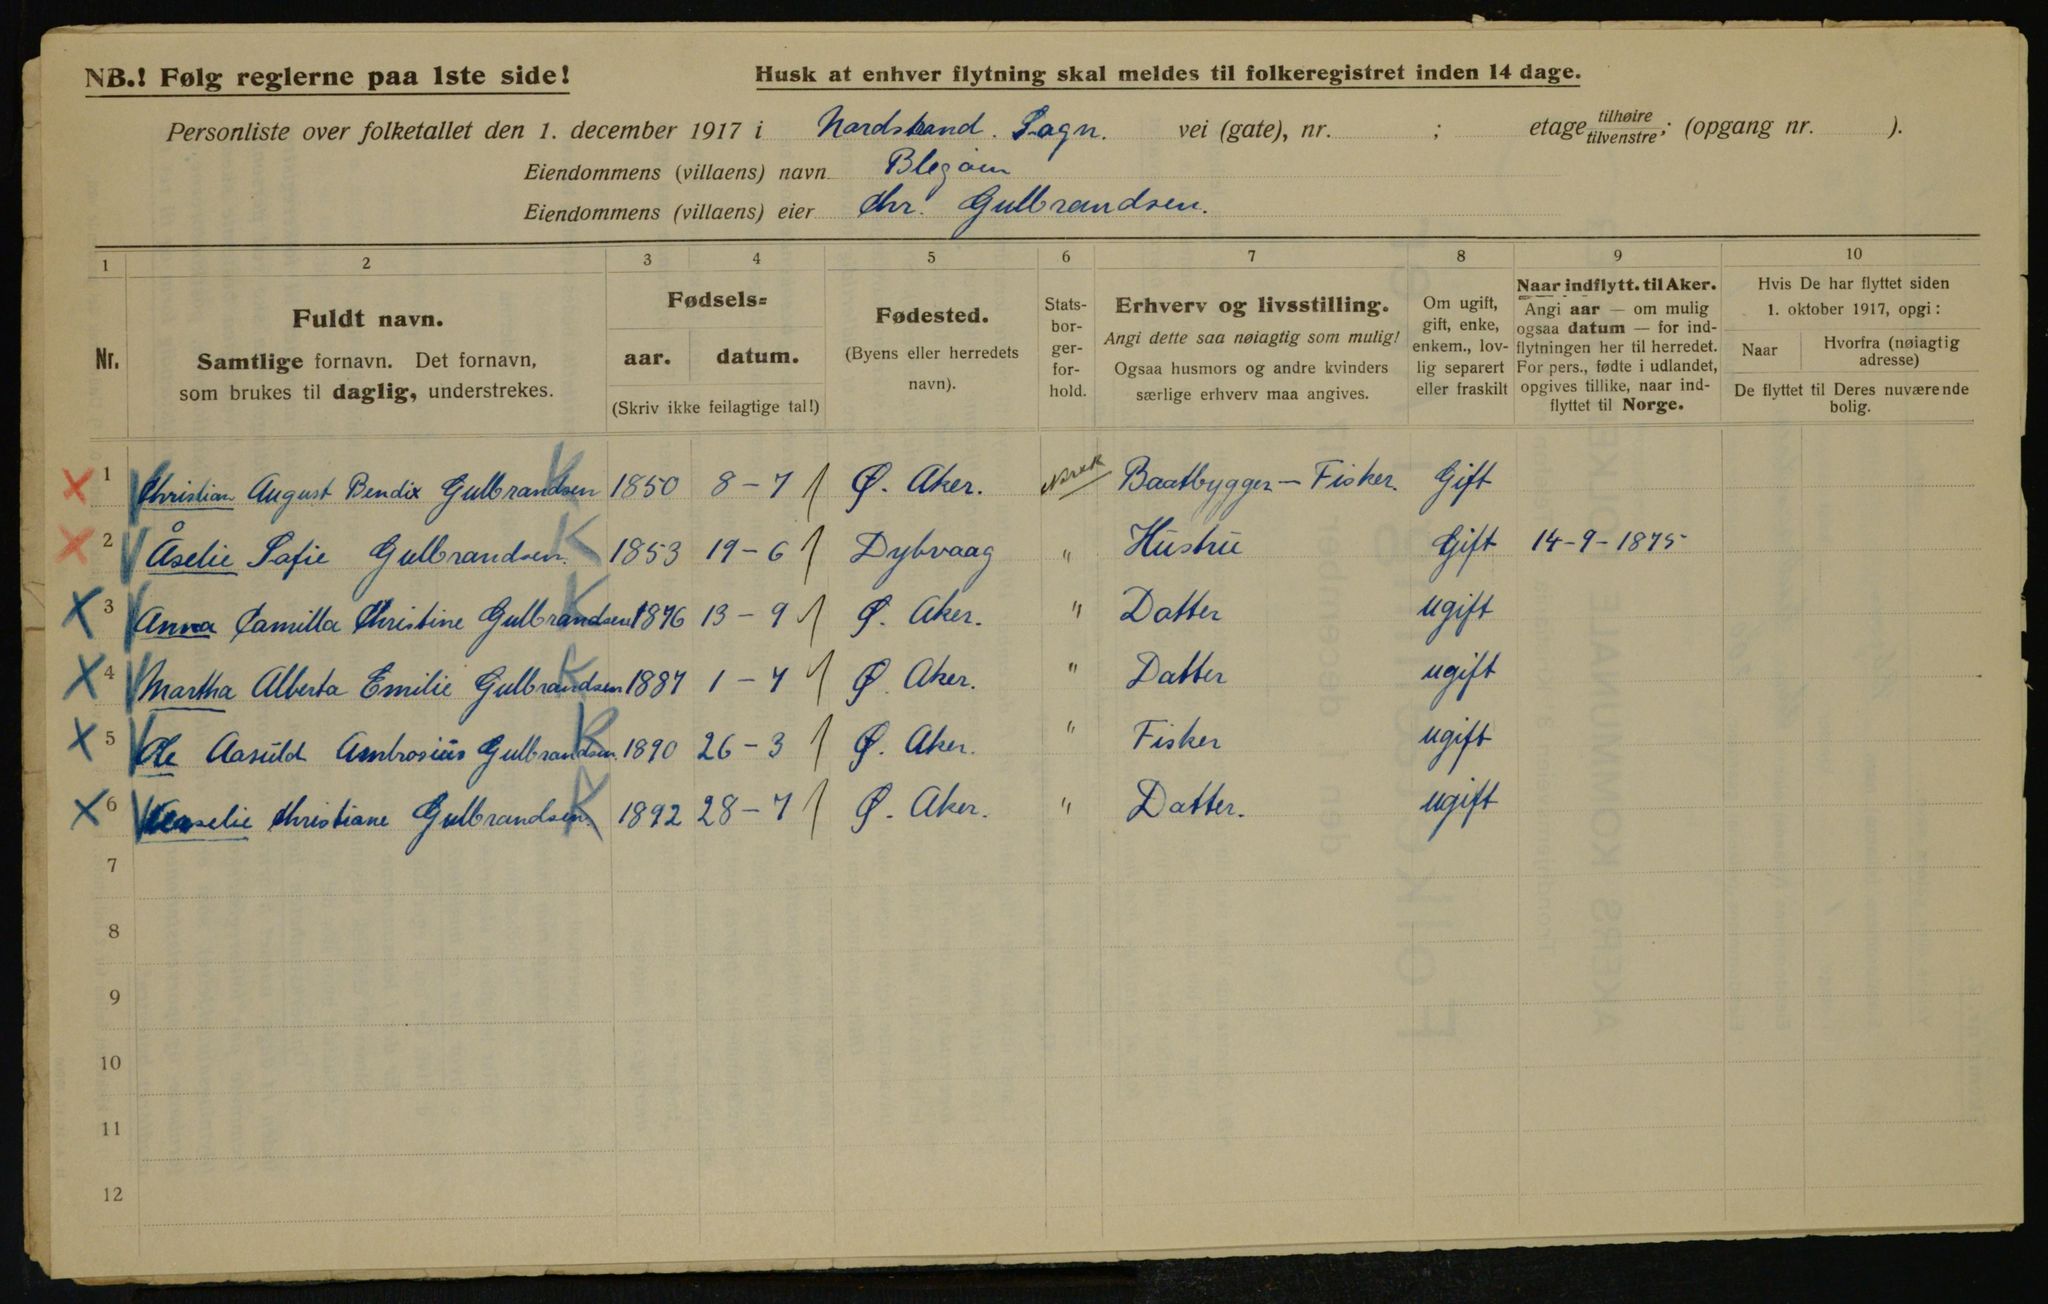 NB.! Følg reglerne paa 1ste side!
Husk at enhver flytning skal meldes til folkeregistret inden 14 dage.
Personliste over folketallet den 1. december 1917 i Nordstrand. Sogn. vei (gate), nr. ; etage tilhøire tilvenstre; (opgang nr. ).
Eiendommens (villaens) navn
Eiendommens (villaens) eier Chr. Gulbrandsen.
1 2 3 4 5 6 7 8 9 10
Nr.
Fuldt navn.
Samtlige fornavn. Det fornavn,
som brukes til daglig, understrekes.
Fødsels=
aar. datum.
(Skriv ikke feilagtige tal!)
Fødested.
(Byens eller herredets
navn).
Stats-
bor-
ger-
for-
hold.
Erhverv og livsstilling.
Angi dette saa nøiagtig som mulig!
Ogsaa husmors og andre kvinders
særlige erhverv maa angives.
Om ugift,
gift, enke,
enkem., lov-
lig separert
eller fraskilt
Naar indflytt. til Aker.
Angi aar — om mulig
ogsaa datum — for ind-
flytningen her til herredet.
For pers., fødte i udlandet,
opgives tillike, naar ind-
flyttet til Norge.
Hvis De har flyttet siden
1. oktober 1917, opgi:
Naar
Hvorfra (nøiagtig
adresse)
De flyttet til Deres nuværende
bolig.
X 1 Christian August Bendix Gulbrandsen K 1850 8-7 / Ø. Aker. Norsk Baatbygger - Fisker. Gift
X 2 Åselie Sofie Gulbrandsen. K 1853 19-6 / Dybvaag " Hustru Gift 14-9-1875
X 3 Anna Camilla Christine Gulbrandsen K 1876 13-9 / Ø. Aker. " Datter ugift
X 4 Martha Alberta Emilie Gulbrandsen K 1887 1-4 / Ø. Aker. " Datter ugift
X 5 Ole Aasuld Ambrosius Gulbrandsen. 1890 26-3 / Ø. Aker. " Fisker ugift
X 6 Christiane Gulbrandsen. K 1892 28-7 / Ø. Aker. " Datter. ugift
7
8
9
10
11
12